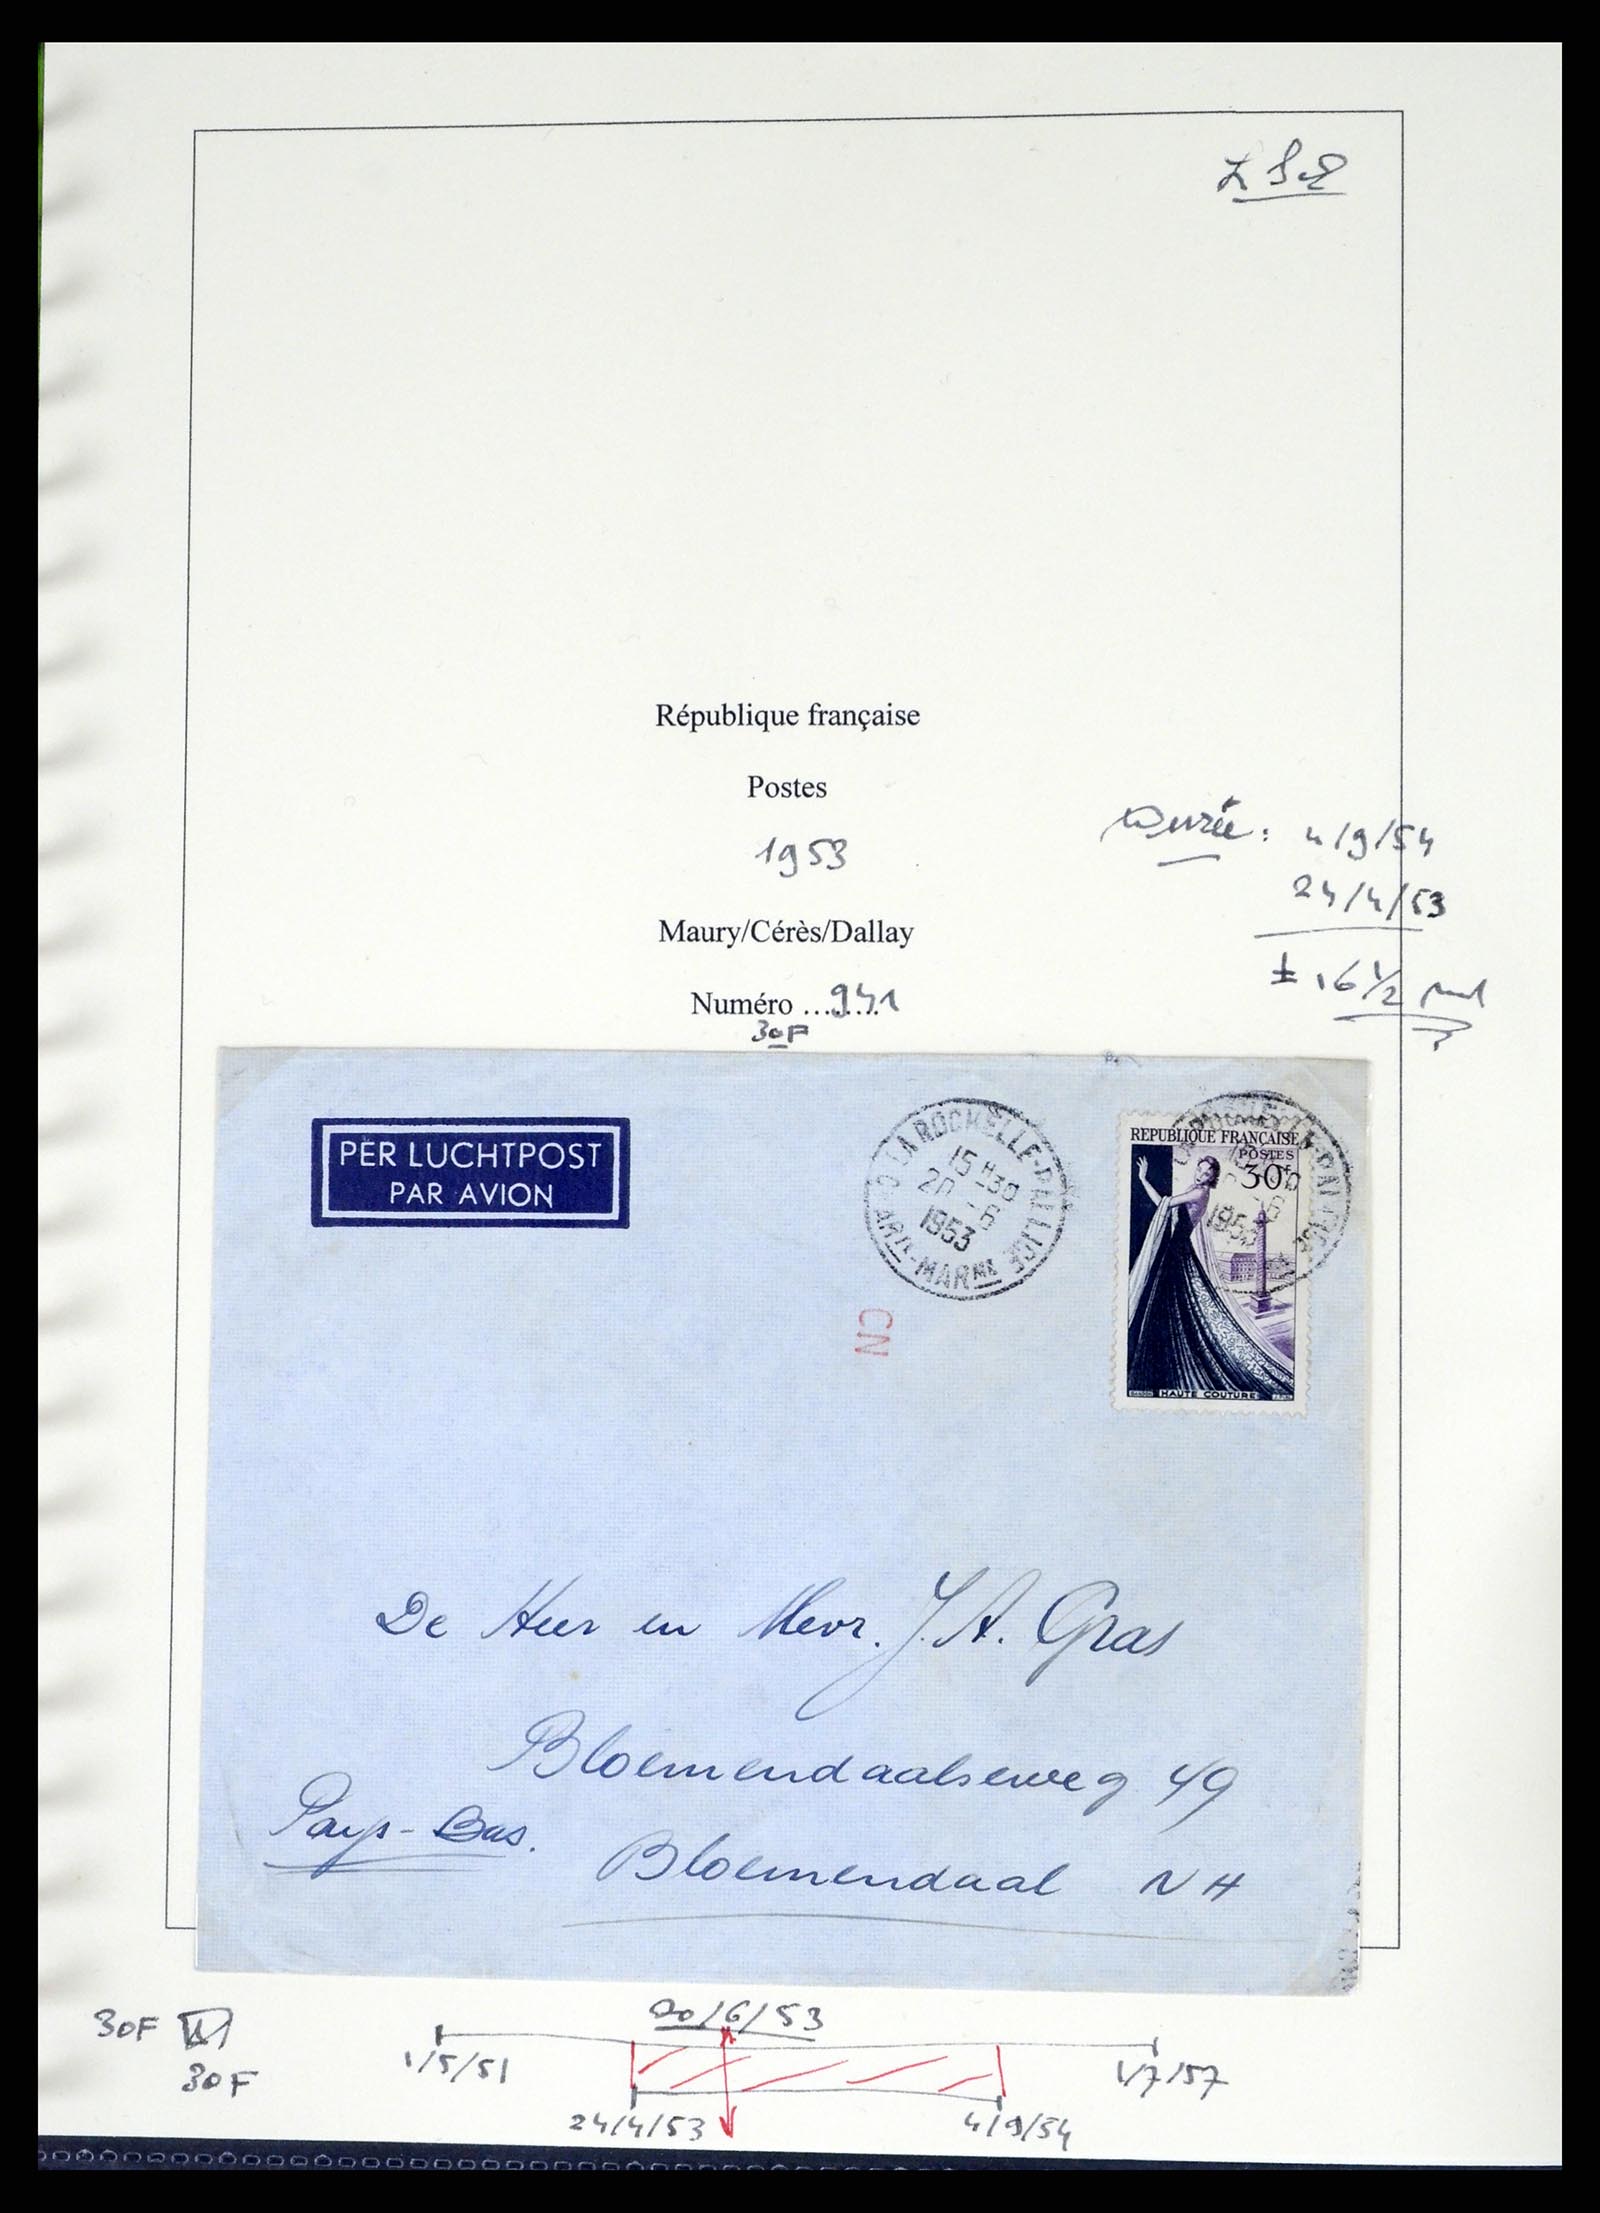 République française
Postes
1953
Maury/Cérès/Dallay
Numéro ........941
30F
Durée : 4/9/54
24/4/53
± 16 1/2
PER LUCHTPOST
PAR AVION
LA ROCHELLE-PALLICE
15 H30
20 -6
1953
REPUBLIQUE FRANÇAISE
POSTES
30F
HAUTE COUTURE
CN
De Heer en Mevr. J. A. Gras
Bloemendaalseweg 49
Pays-Bas.
Bloemendaal N H
30F
30F
20/6/53
1/5/51
1/7/57
24/4/53
4/9/54